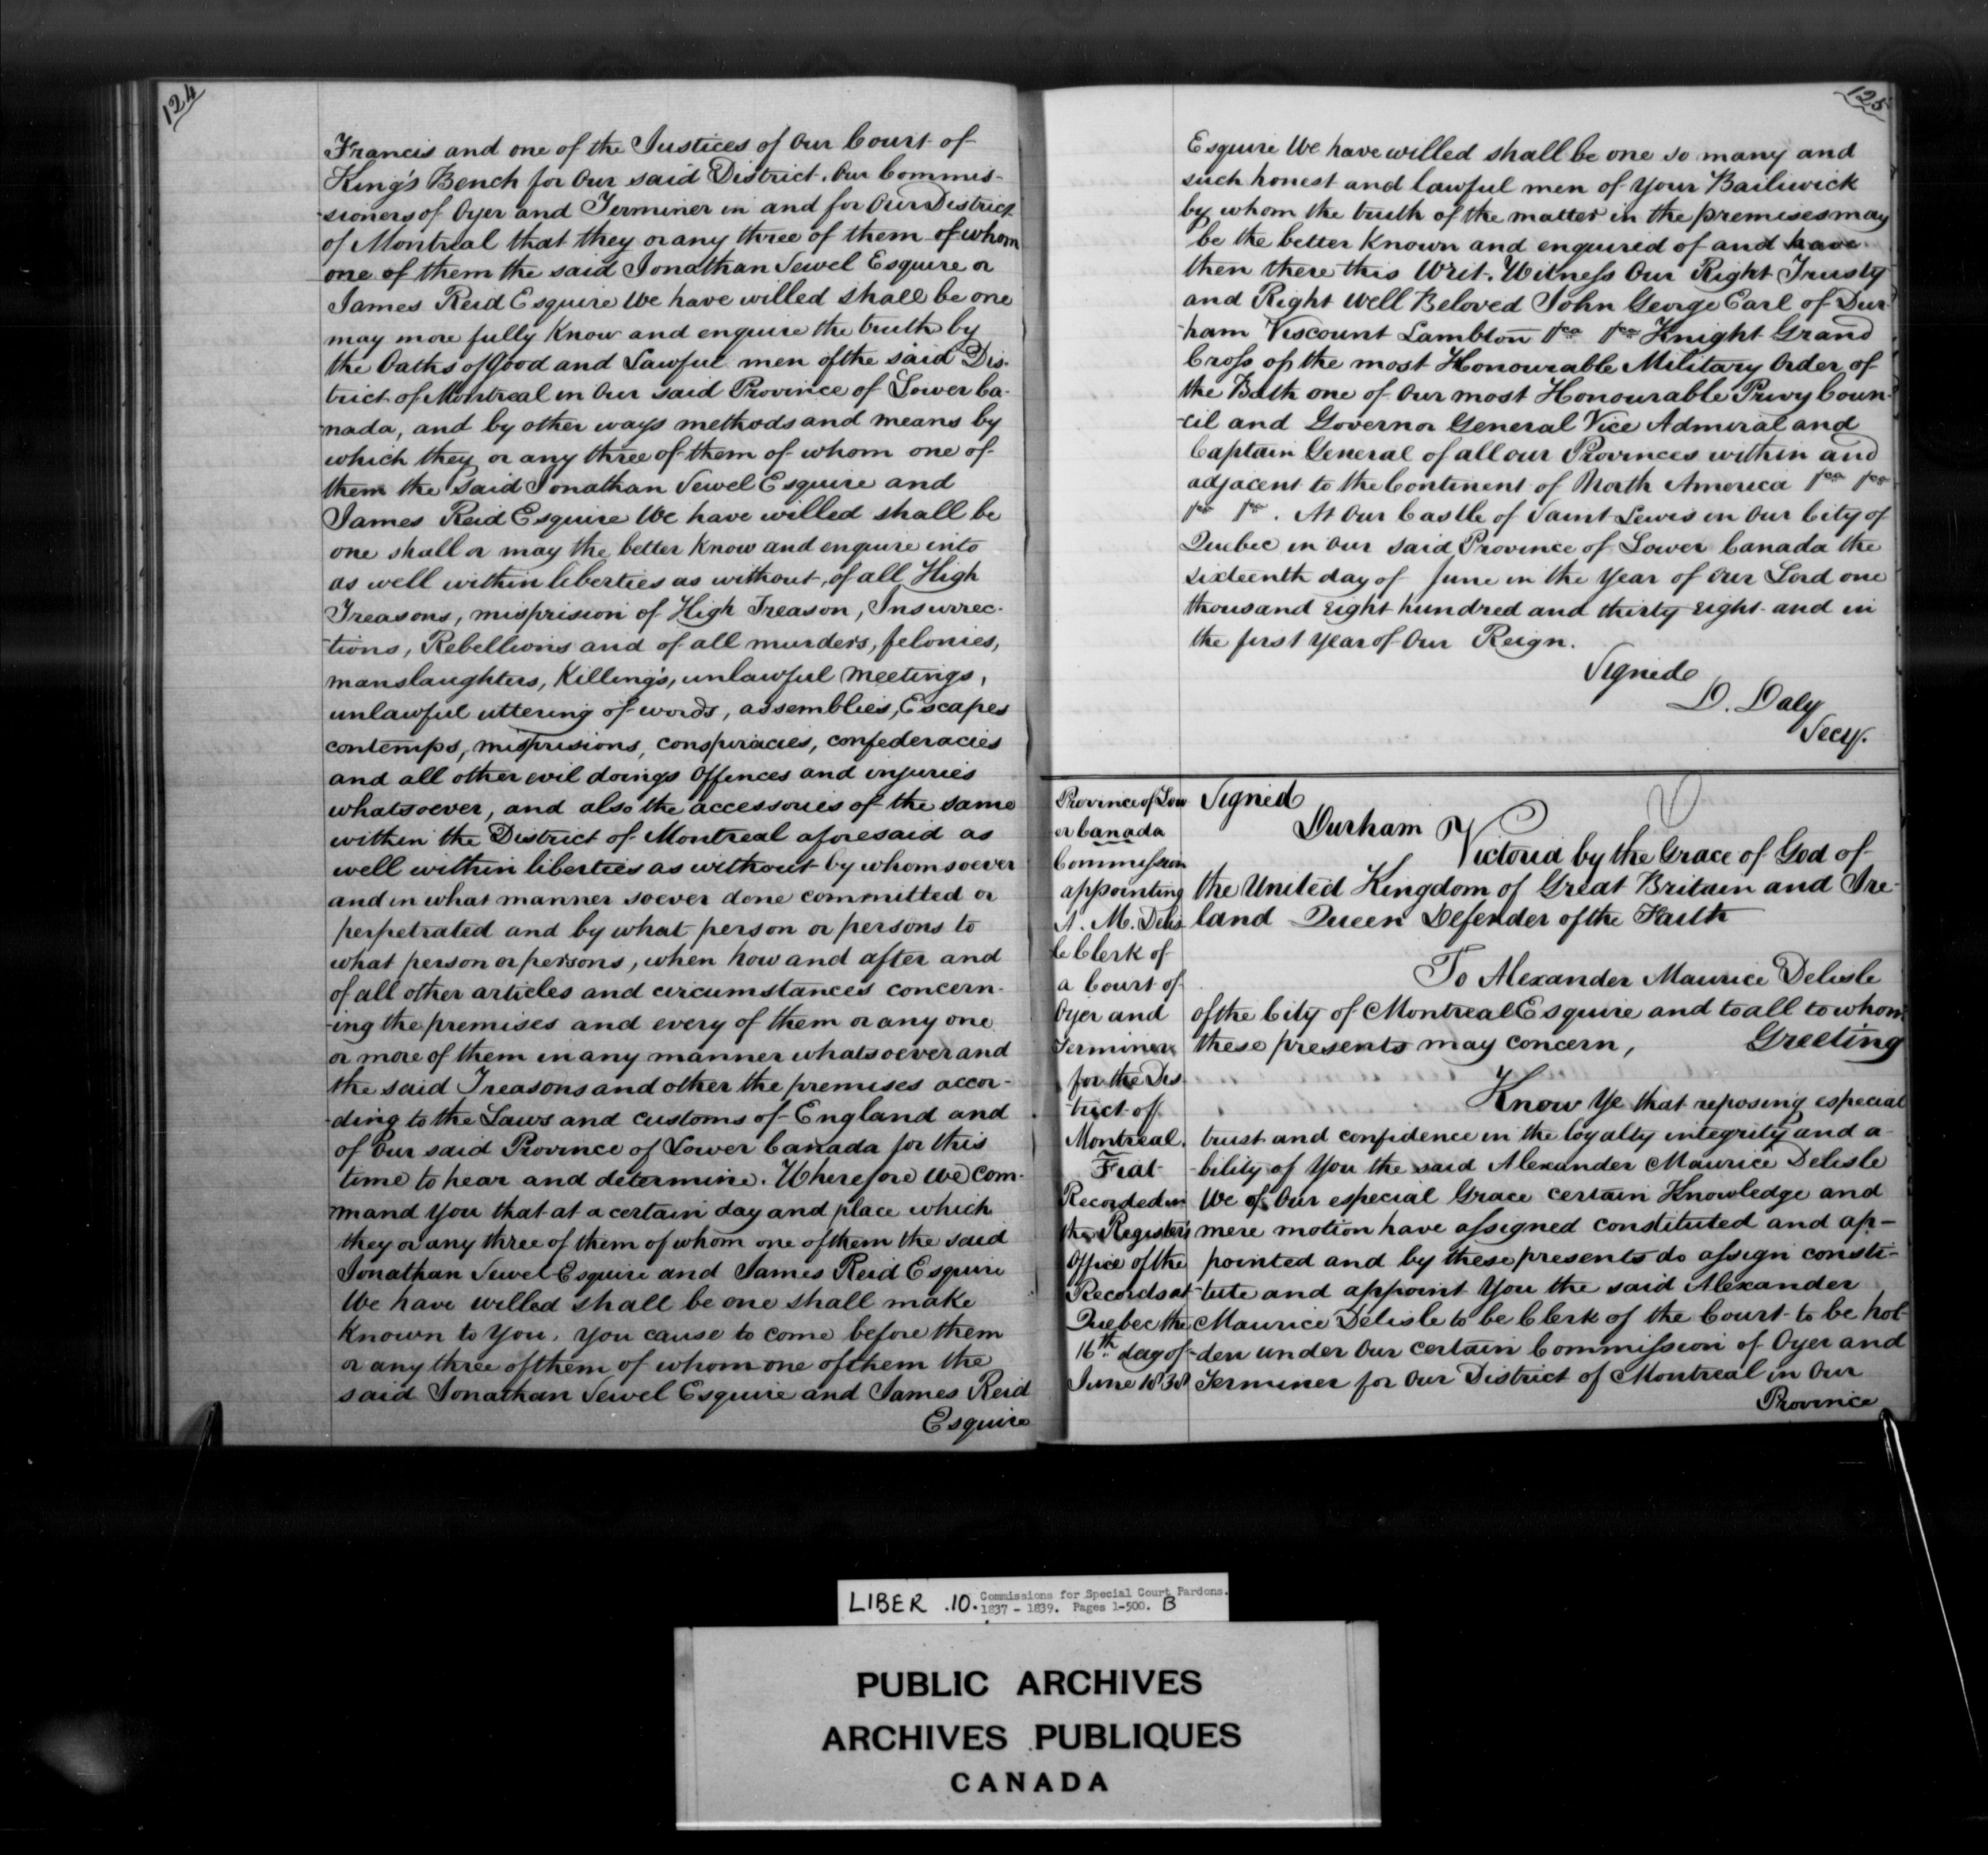 124
Francis and one of the Justices of Our Court of
King's Bench for Our said District. Our Commis-
-sioners of Oyer and Terminer in and for Our District
of Montreal that they or any three of them of whom
one of them the said Jonathan Sewel Esquire or
James Reid Esquire We have willed shall be one
may more fully Know and enquire the truth by
the Oaths of Good and Lawful men of the said Dis-
trict of Montreal in Our said Province of Lower Ca-
-nada, and by other ways methods and means by
which they or any three of them of whom one of
them the said Jonathan Sewel Esquire and
James Reid Esquire We have willed shall be
one shall or may the better Know and enquire into
as well within liberties as without, of all High
Treasons, misprision of High Treason, Insurrec-
-tions, Rebellions and of all murders, felonies,
manslaughters, Killing's, unlawful Meetings,
unlawful uttering of words, assemblies, Escapes
contemps, misprisions, conspiracies, confederacies
and all other evil doings Offences and injuries
whatsoever, and also the accessories of the same
within the District of Montreal aforesaid as
well within liberties as without by whomsoever
and in what manner soever done committed or
perpetrated and by what person or persons to
what person or persons, when how and after and
of all other articles and circumstances concern-
-ing the premises and every of them or any one
or more of them in any manner whatsoever and
the said Treasons and other the premises accor-
-ding to the Laws and customs of England and
of Our said Province of Lower Canada for this
time to hear and determine. Wherefore We com-
mand You that at a certain day and place which
they or any three of them of whom one of them the said
Jonathan Sewel Esquire and James Reid Esquire
We have willed shall be one shall make
Known to You, You cause to come before them
or any three of them of whom one of them the
said Jonathan Sewel Esquire and James Reid
Esquire
125
Esquire We have willed shall be one so many and
such honest and lawful men of Your Bailiwick
by whom the truth of the matter in the premises may
be the better Known and enquired of and have
then there this Writ. Witness Our Right Trusty
and Right Well Beloved John George Earl of Dur-
-ham Viscount Lambton &ca &ca Knight Grand
Cross of the most Honourable Military Order of
the Bath one of Our most Honourable Privy Coun-
-cil and Governor General Vice Admiral and
Captain General of all our Provinces within and
adjacent to the Continent of North America &ca &ca
&ca &ca. At Our Castle of Saint Lewis in Our City of
Quebec in Our said Province of Lower Canada the
sixteenth day of June in the Year of Our Lord one
thousand Eight hundred and thirty Eight and in
the first Year of Our Reign.
Signed
D. Daly
Secy.
Province of Low
er Canada
Commission
appointing
A. M. Delis
le Clerk of
a Court of
Oyer and
Terminer
for the Dis
-trict of
Montreal.
Fiat
Recorded in
the Register's
Office of the
Records at
Quebec the
16th day of
June 1838
Signed
Durham
Victoria by the Grace of God of
the United Kingdom of Great Britain and Ire-
land Queen Defender of the Faith
To Alexander Maurice Delisle
of the City of Montreal Esquire and to all to whom
these presents may concern, Greeting
Know Ye that reposing especial
trust and confidence in the loyalty integrity and a-
-bility of You the said Alexander Maurice Delisle
We of Our especial Grace certain Knowledge and
mere motion have assigned constituted and ap-
pointed and by these presents do assign consti-
-tute and appoint You the said Alexander
Maurice Delisle to be Clerk of the Court to be hol-
-den under Our certain Commission of Oyer and
Terminer for Our District of Montreal in Our
Province
LIBER .10. Commissions for Special Court Pardons.
1837 - 1839. Pages 1-500. B
PUBLIC ARCHIVES
ARCHIVES PUBLIQUES
CANADA